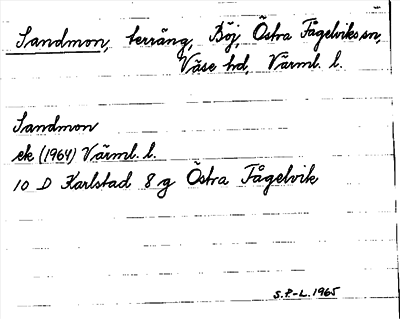 Sandmon, terräng, Böj, Östra Fågelviks sn,
Väse hd, Värml. l.
Sandmon
ek (1964) Värml. l.
10 D Karlstad 8 g Östra Fågelvik
S.P.-L. 1965